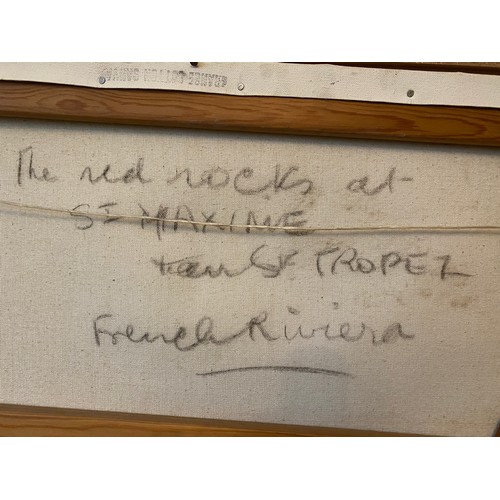 The red rocks at
ST MAXIME
St TROPEZ
French Riviera